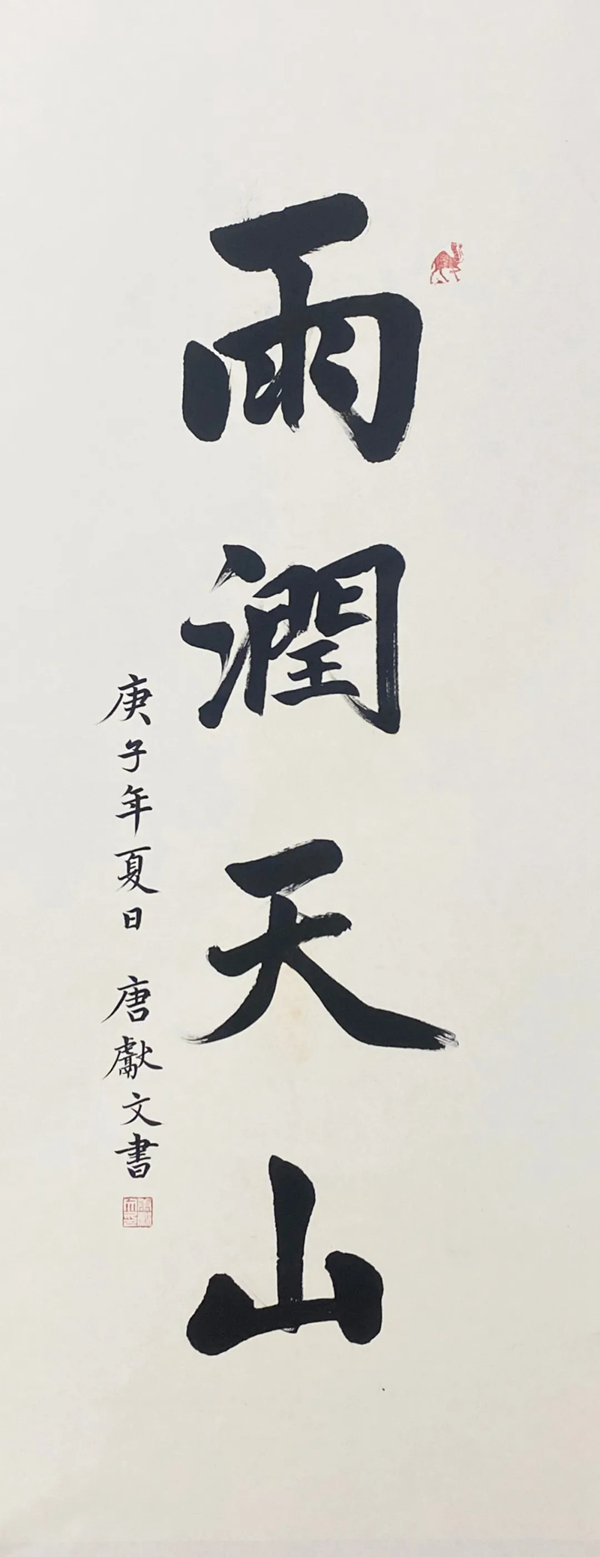 雨潤天山
庚子年夏日 唐獻文書